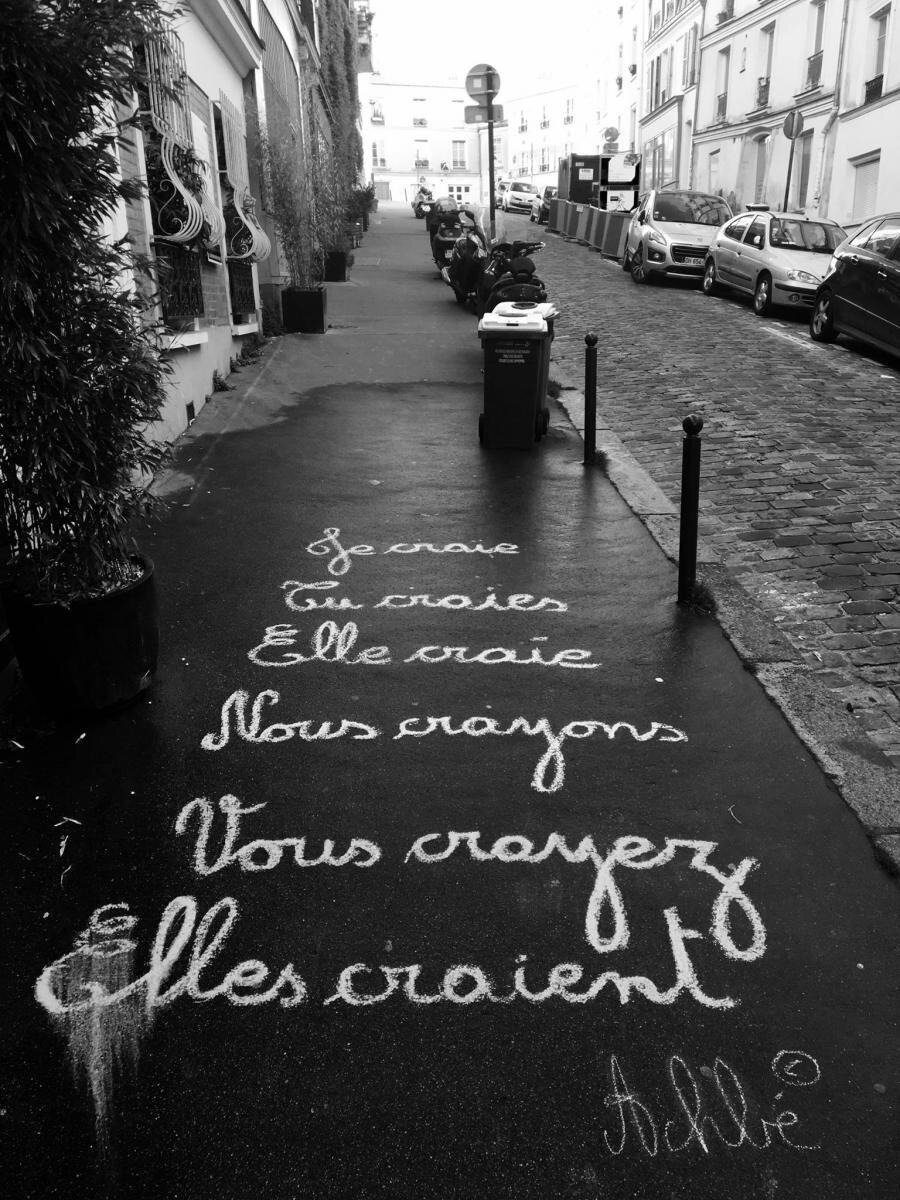 Je craie
Tu craies
Elle craie
Nous crayons
Vous crayez
Elles craient
Achbé ©